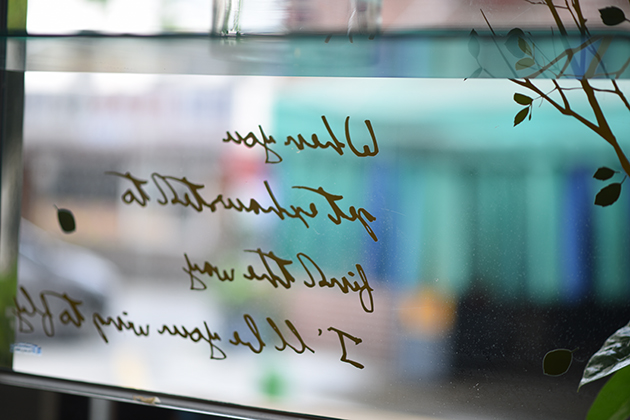 When you
get exhausted to
find the way
I'll be your wing to fly